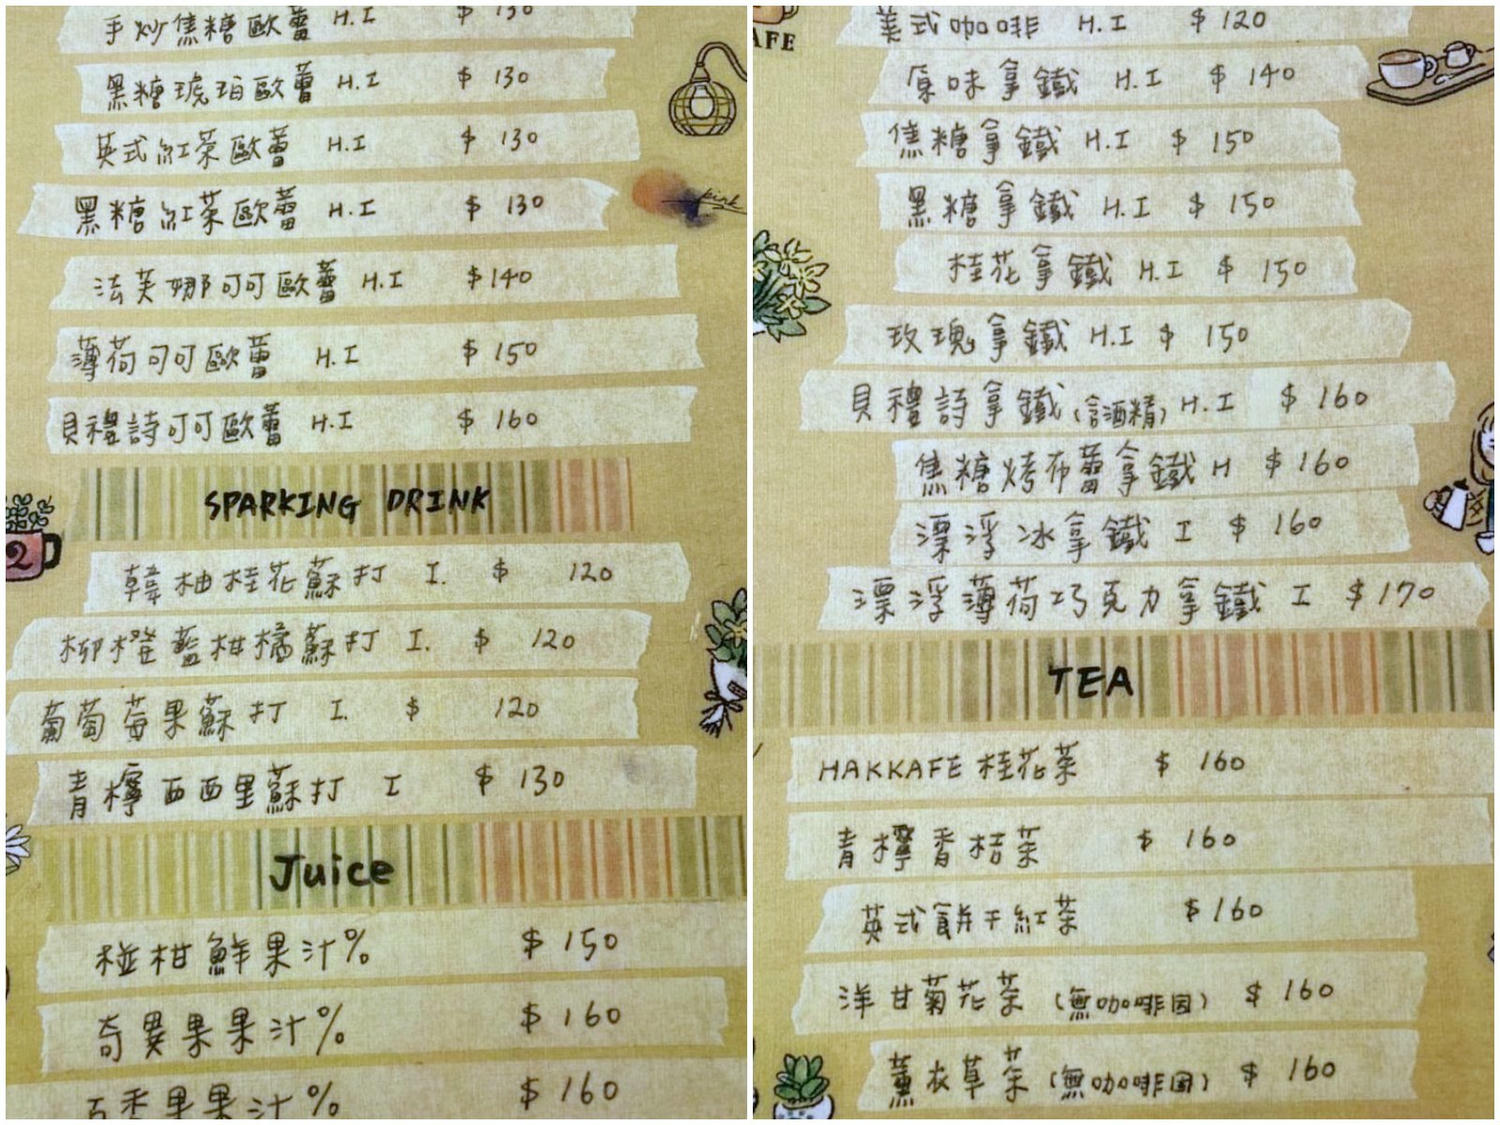 手炒焦糖歐蕾 H.I $ 130
黑糖琥珀歐蕾 H.I $ 130
英式紅茶歐蕾 H.I $ 130
黑糖紅茶歐蕾 H.I $ 130
pink
法芙娜可可歐蕾 H.I $ 140
薄荷可可歐蕾 H.I $ 150
貝禮詩可可歐蕾 H.I $ 160
SPARKING DRINK
2
韓柚桂花蘇打 I. $ 120
柳橙藍柑橘蘇打 I. $ 120
葡萄莓果蘇打 I. $ 120
青檸西西里蘇打 I $ 130
Juice
椪柑鮮果汁% $ 150
奇異果果汁% $ 160
百香果果汁% $ 160
AFE
美式咖啡 H.I $ 120
原味拿鐵 H.I $ 140
焦糖拿鐵 H.I $ 150
黑糖拿鐵 H.I $ 150
桂花拿鐵 H.I $ 150
玫瑰拿鐵 H.I $ 150
貝禮詩拿鐵(含酒精) H.I $ 160
焦糖烤布蕾拿鐵 H $ 160
漂浮冰拿鐵 I $ 160
漂浮薄荷巧克力拿鐵 I $ 170
TEA
HAKKAFE 桂花茶 $ 160
青檸香桔茶 $ 160
英式餅干紅茶 $ 160
洋甘菊花茶 (無咖啡因) $ 160
薰衣草茶 (無咖啡因) $ 160